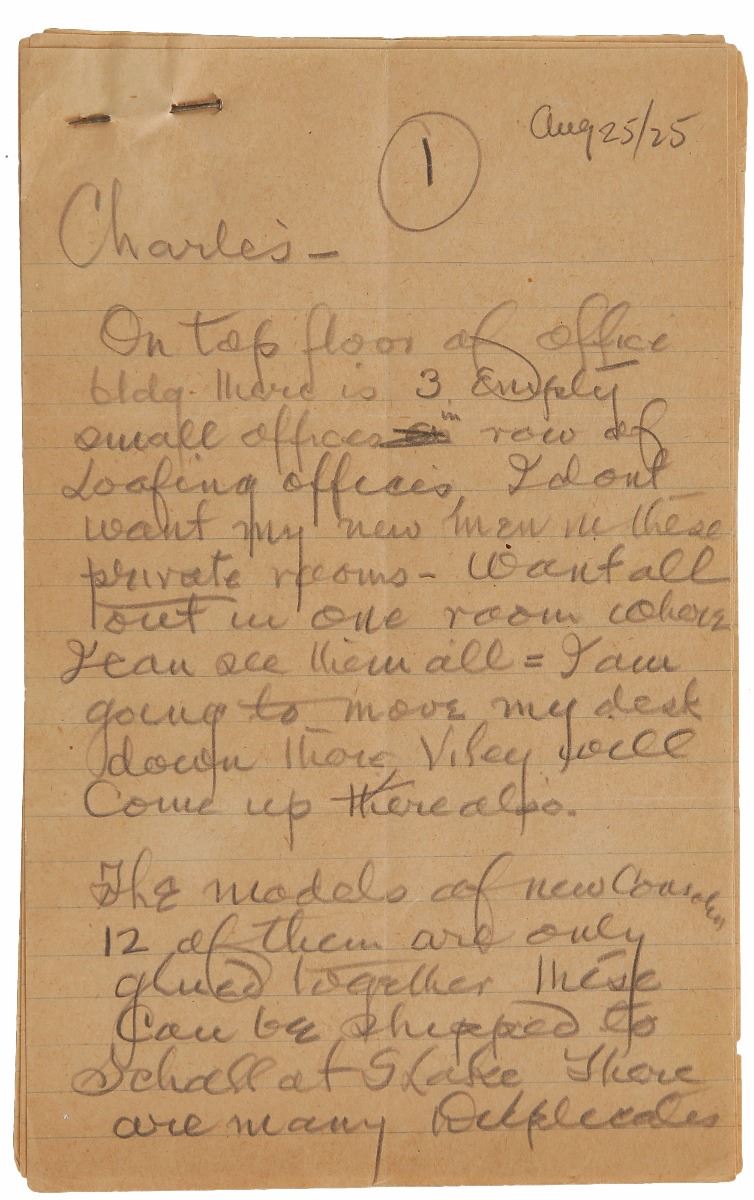 Aug 25/25
1
Charles -
On top floor of office
bldg there is 3 Empty
small offices in row of
Loafing offices, I dont
want my new men in these
private rooms - Want all
out in one room where
I can see them all = I am
going to move my desk
down there, will
Come up there also.
The models of new Consoles
12 of them are only
glued together These
Can be shipped to
Schall at S Lake There
are many Duplicates